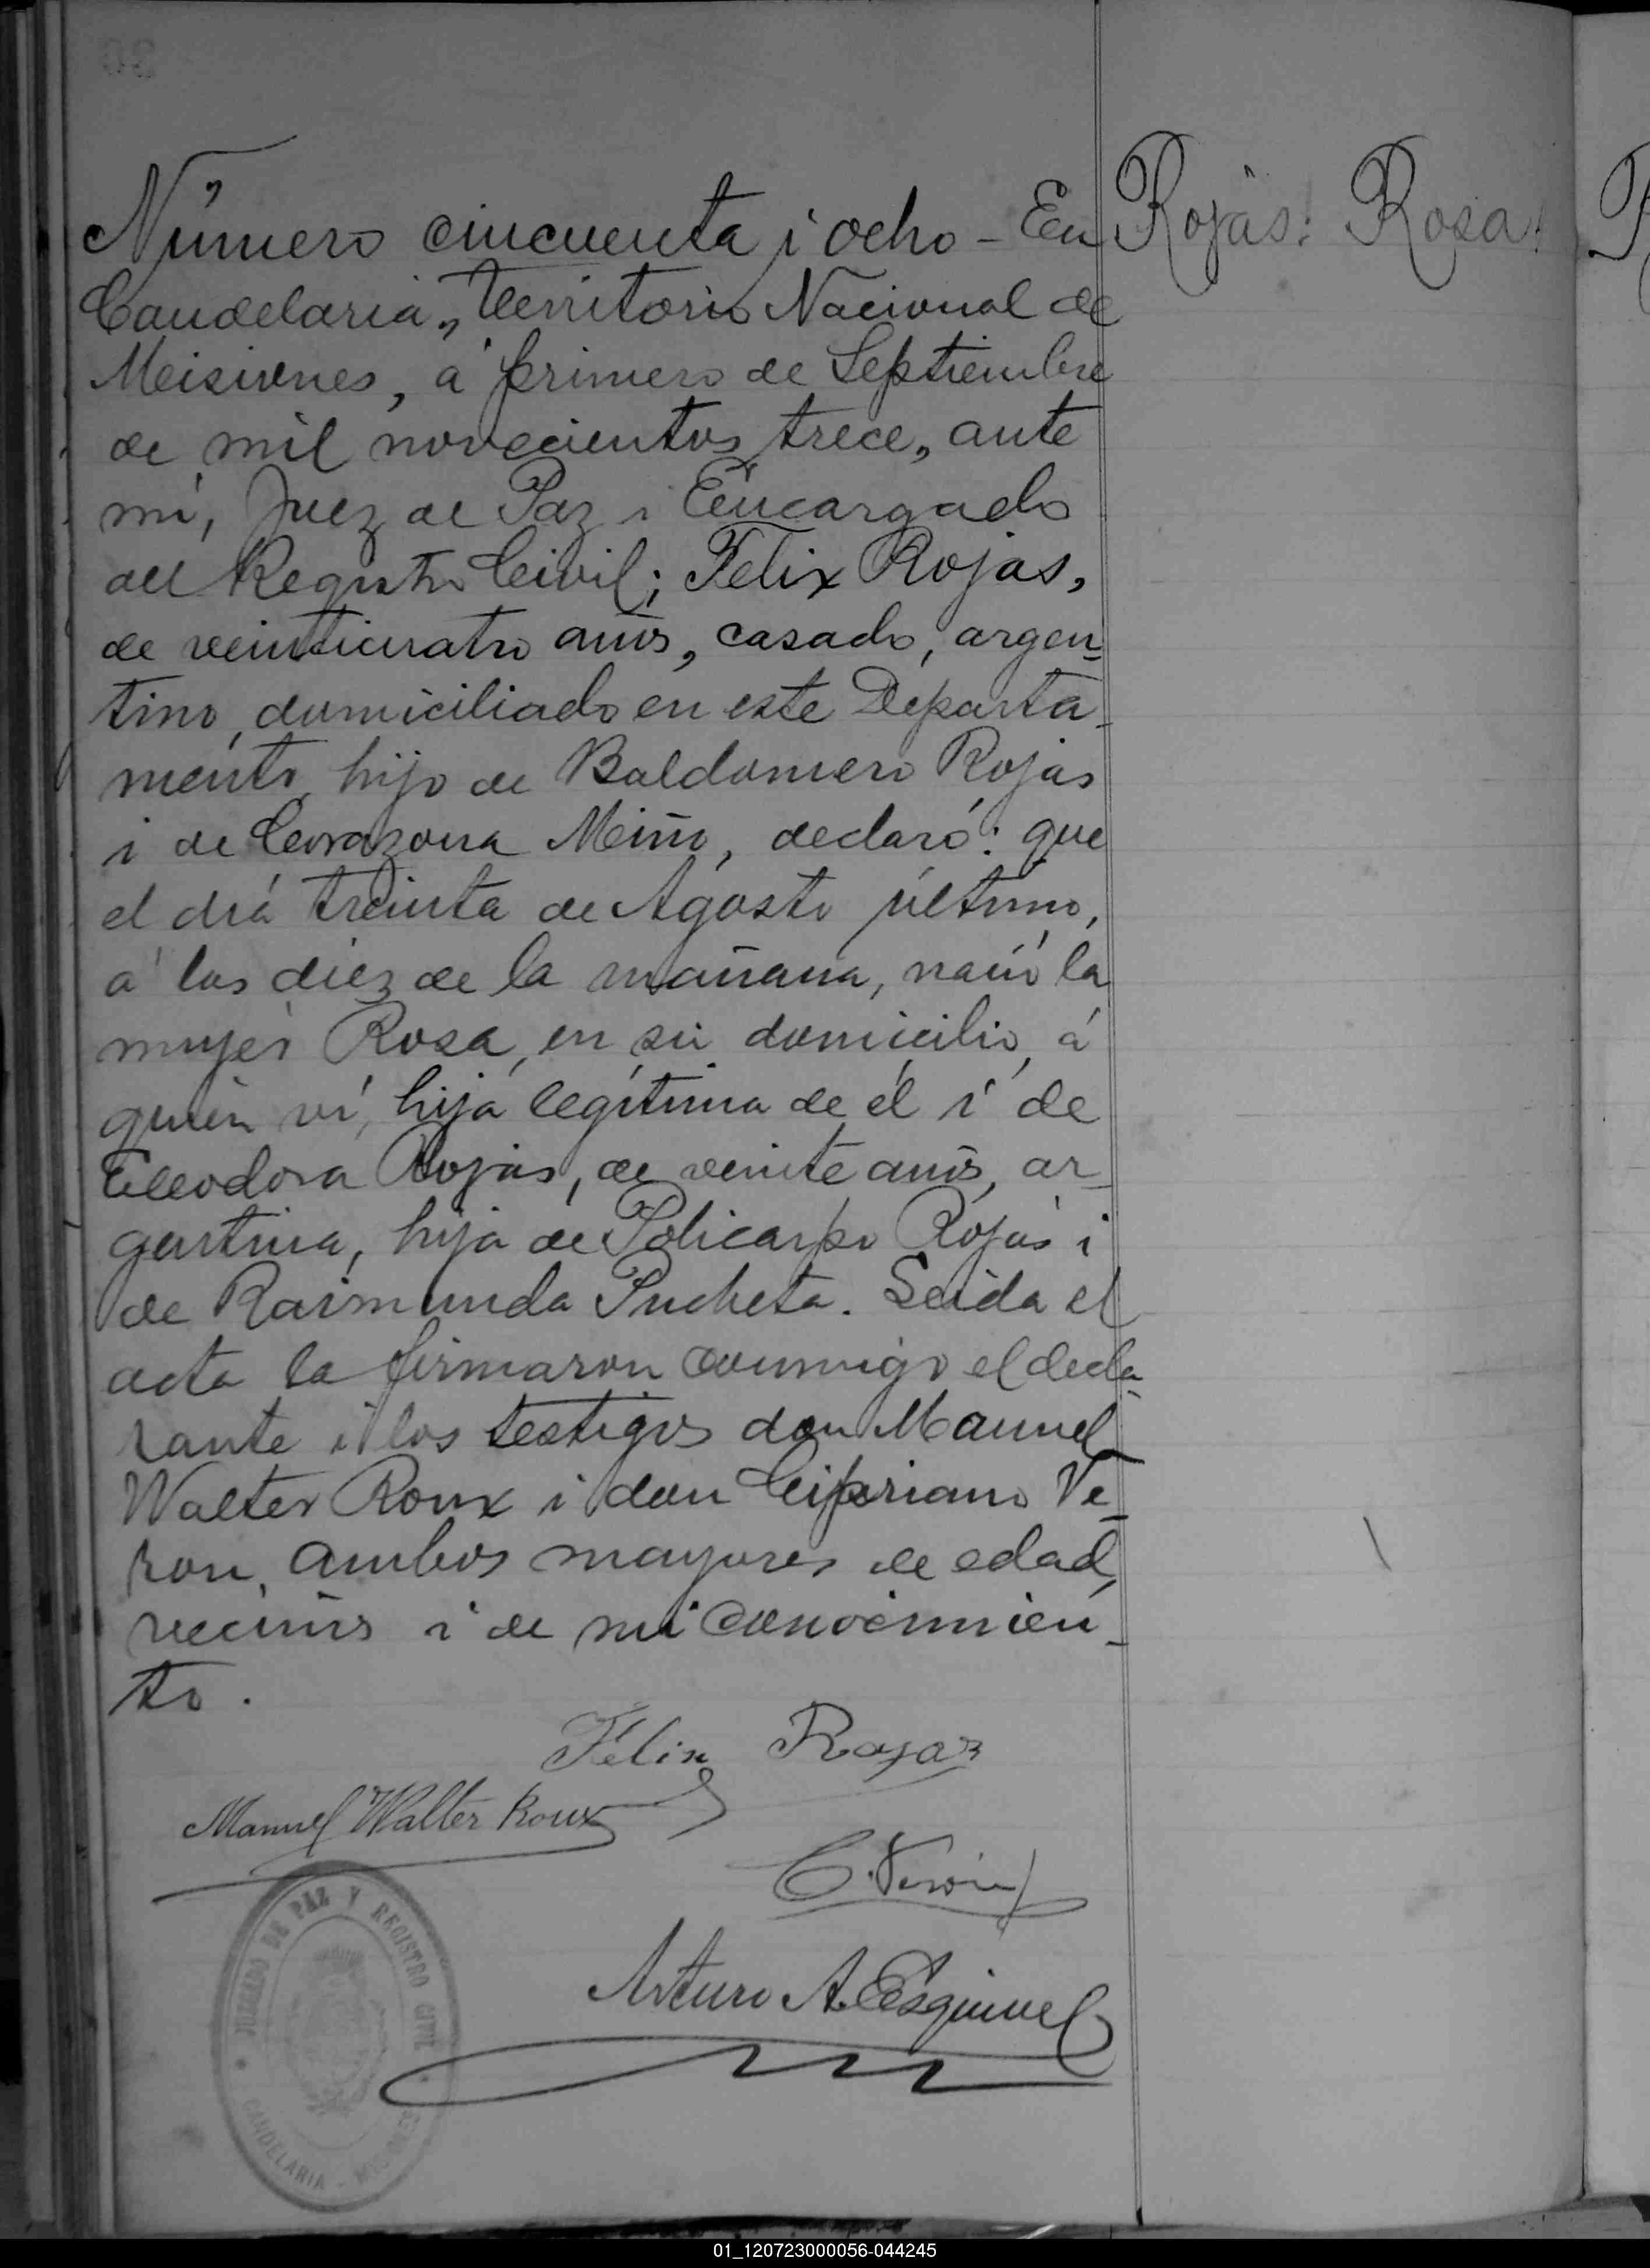 Número cincuenta i ocho - En
Rojas: Rosa.
Candelaria, Territorio Nacional de
Misiones, á primero de Septiembre
de mil novecientos trece, ante
mí, Juez de Paz i Encargado
del Registro Civil; Felix Rojas,
de veinticuatro años, casado, argen-
tino, domiciliado en este Departa-
mento, hijo de Baldomero Rojas
i de Corazona Miño, declaró: que
el dia treinta de Agosto último,
á las diez de la mañana, nació la
mujer Rosa, en su domicilio, á
quien ví, hija legítima de él i de
Rojas, de veinte años, ar-
gentina, hija de Policarpo Rojas i
de Raimunda Pucheta. Leida el
acta la firmaron conmigo el decla-
rante i los testigos don Manuel
Walter Roux i don Cipriano Ve-
ron, ambos mayores de edad,
vecinos i de mi conocimien-
to.
Félix Rojas
Manuel Walter Roux
C. Verón
Arturo A. Esquivel
JUZGADO DE PAZ Y REGISTRO CIVIL
CANDELARIA - MISIONES
01_120723000056-044245